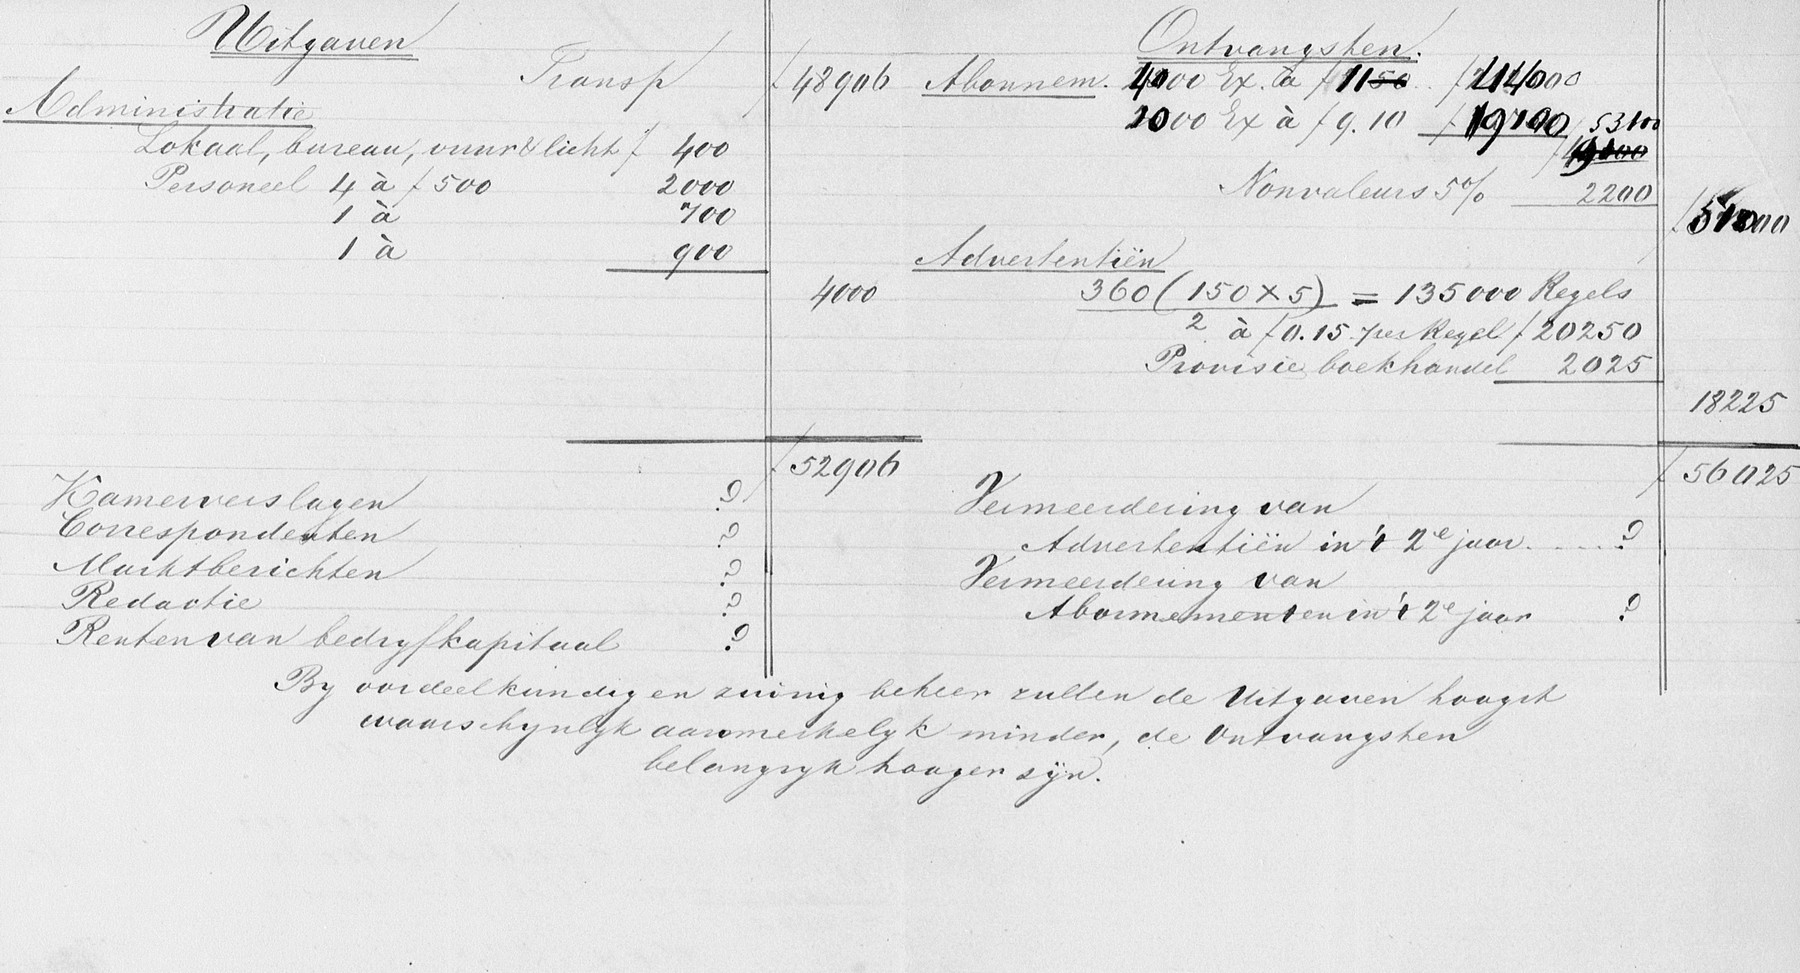 Uitgaven
Transp f 48906
Administratie
Lokaal, bureau, vuur & licht f 400
Personeel 4 à f 500 2000
1 à 700
1 à 900
4000
f 52906
Kamerverslagen ?
Correspondenten ?
Marktberichten ?
Redactie ?
Renten van bedryfkapitaal ?
Ontvangsten.
Abonnem. 4000 Ex. à f 11
2000 Ex à f 9.10
53100
Nonvaleurs 5% 2200
Advertentiën
360 (150 x 5) = 135000 Regels
2
à f 0.15 per Regel f 20250
Provisie boekhandel 2025
18225
f 56025
Vermeerdering van
Advertentiën in 't 2e jaar ..... ?
Vermeerdering van
Abonnementen in 't 2e jaar ?
By oordeelkundig en zuinig beheer zullen de Uitgaven hoogst
waarschynlyk aanmerkelyk minder, de Ontvangsten
belangryk hooger zyn.